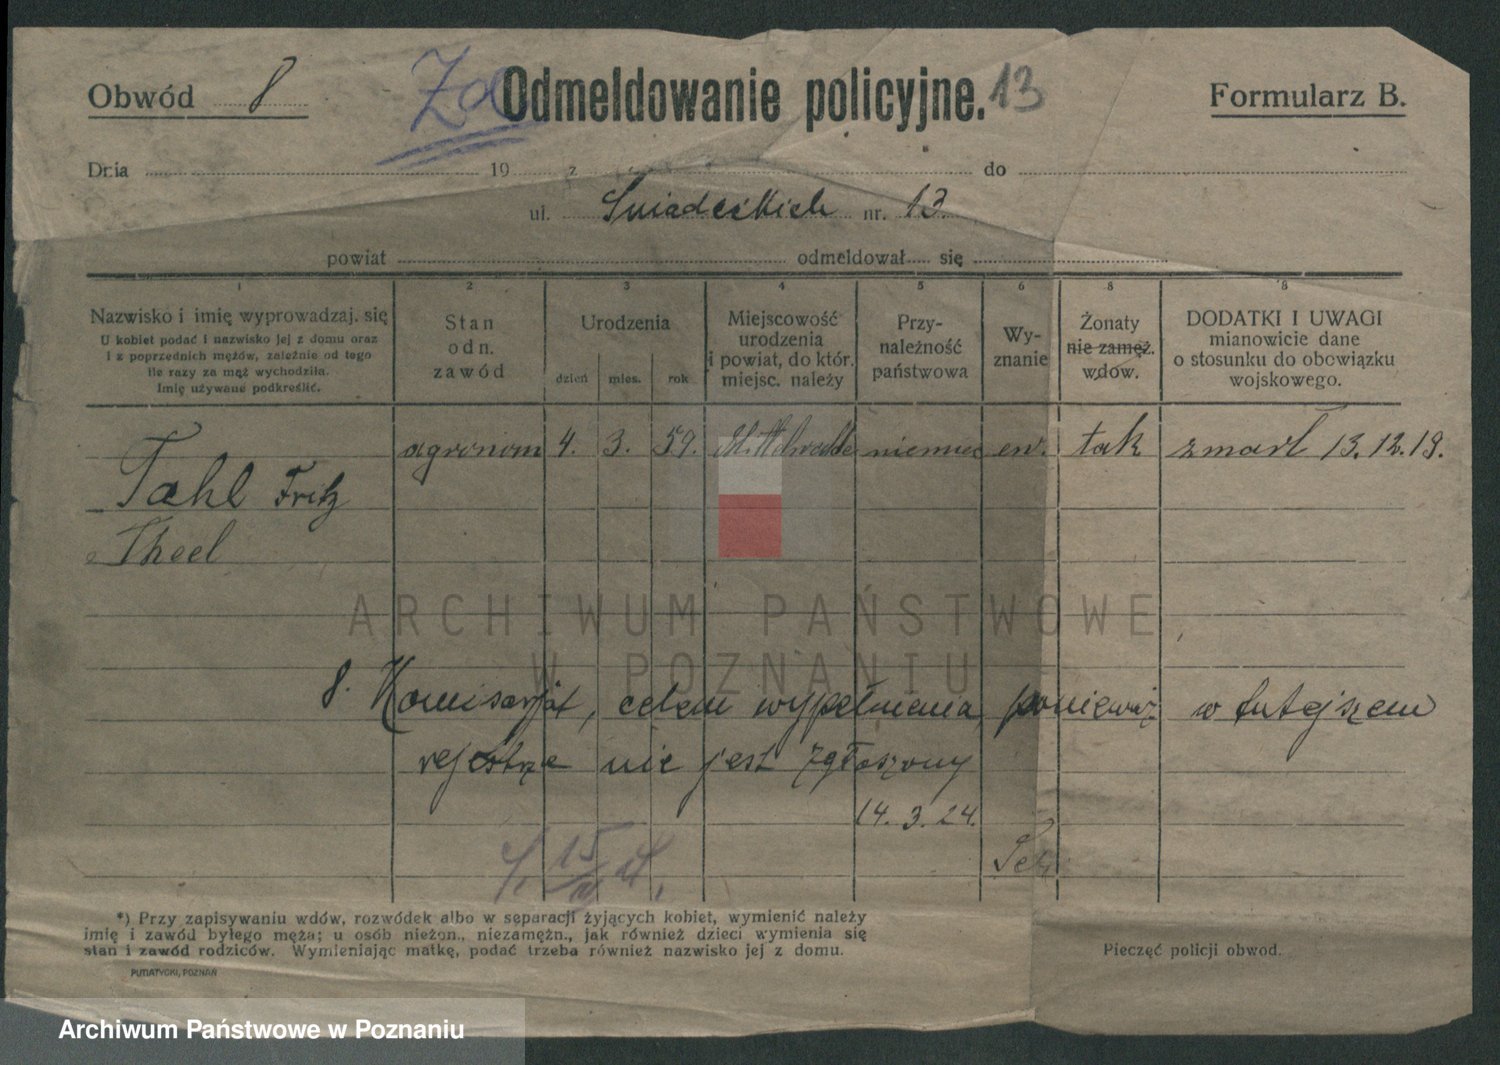 Obwód 8
Za
Odmeldowanie policyjne.
13
Formularz B.
Dnia 19 z do
ul. Śniadeckich nr. 13.
powiat odmeldował się
1 2 3 4 5 6 8 8
Nazwisko i imię wyprowadzaj. się
U kobiet podać i nazwisko jej z domu oraz
i z poprzednich mężów, zależnie od tego
ile razy za mąż wychodziła.
Imię używane podkreślić.
Stan
odn.
zawód
Urodzenia
dzień mies. rok
Miejscowość
urodzenia
i powiat, do któr.
miejsc. należy
Przy-
należność
państwowa
Wy-
znanie
Żonaty
nie zamęż.
wdow.
DODATKI I UWAGI
mianowicie dane
o stosunku do obowiązku
wojskowego.
agronom 4. 3. 59. niemiec ew. tak zmarł 13.12.19.
Tahl Fritz
Theel
ARCHIWUM PAŃSTWOWE
W POZNANIU
8. Komisarjat, celem wypełnienia, ponieważ w tutejszem
rejestrze nie jest zgłoszony
14.3.24.
15
*) Przy zapisywaniu wdów, rozwódek albo w separacji żyjących kobiet, wymienić należy
imię i zawód byłego męża; u osób nieżon., niezamężn., jak również dzieci wymienia się
stan i zawód rodziców. Wymieniając matkę, podać trzeba również nazwisko jej z domu.
Pieczęć policji obwod.
PUTIATYCKI, POZNAŃ
Archiwum Państwowe w Poznaniu